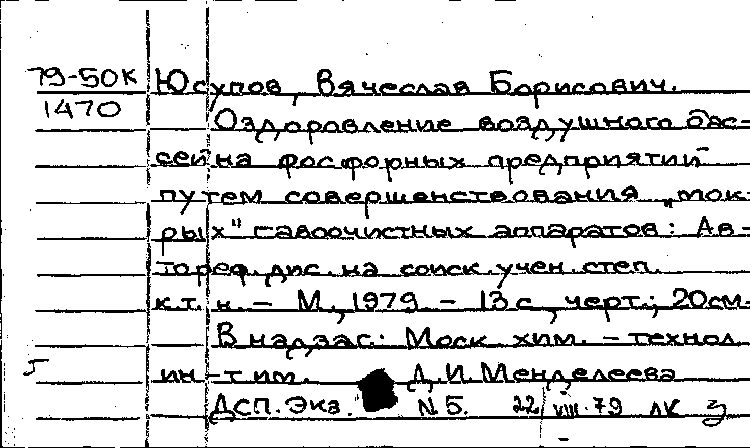 79-50К Юсупов, Вячеслав Борисович.
1470
Оздоровление воздушного бас-
сейна фосфорных предприятий
путем совершенствования „мок-
рых" газоочистных аппаратов: Ав-
тореф. дис. на соиск. учен. степ.
к.т.н. - М., 1979. - 13 с., черт.; 20см.
В надзаг.: Моск. хим.-технол.
ин-т им. Д.И. Менделеева
ДСП. Экз. N5. 22/VIII-79 ЛК